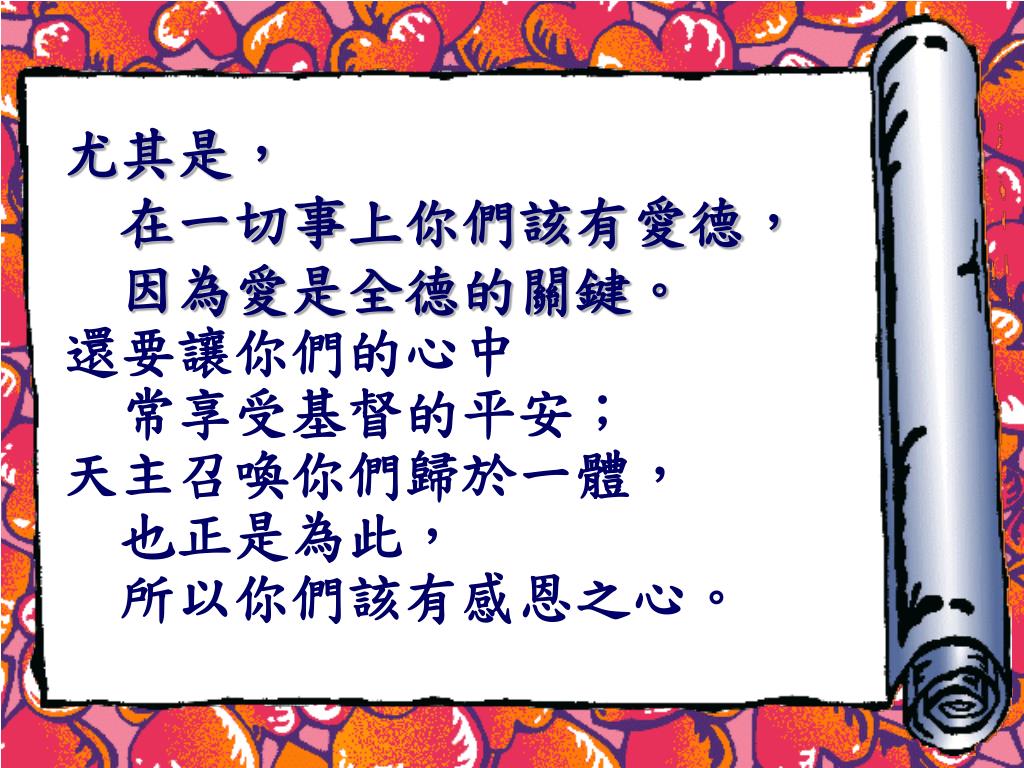 尤其是，
在一切事上你們該有愛德，
因為愛是全德的關鍵。
還要讓你們的心中
常享受基督的平安；
天主召喚你們歸於一體，
也正是為此，
所以你們該有感恩之心。